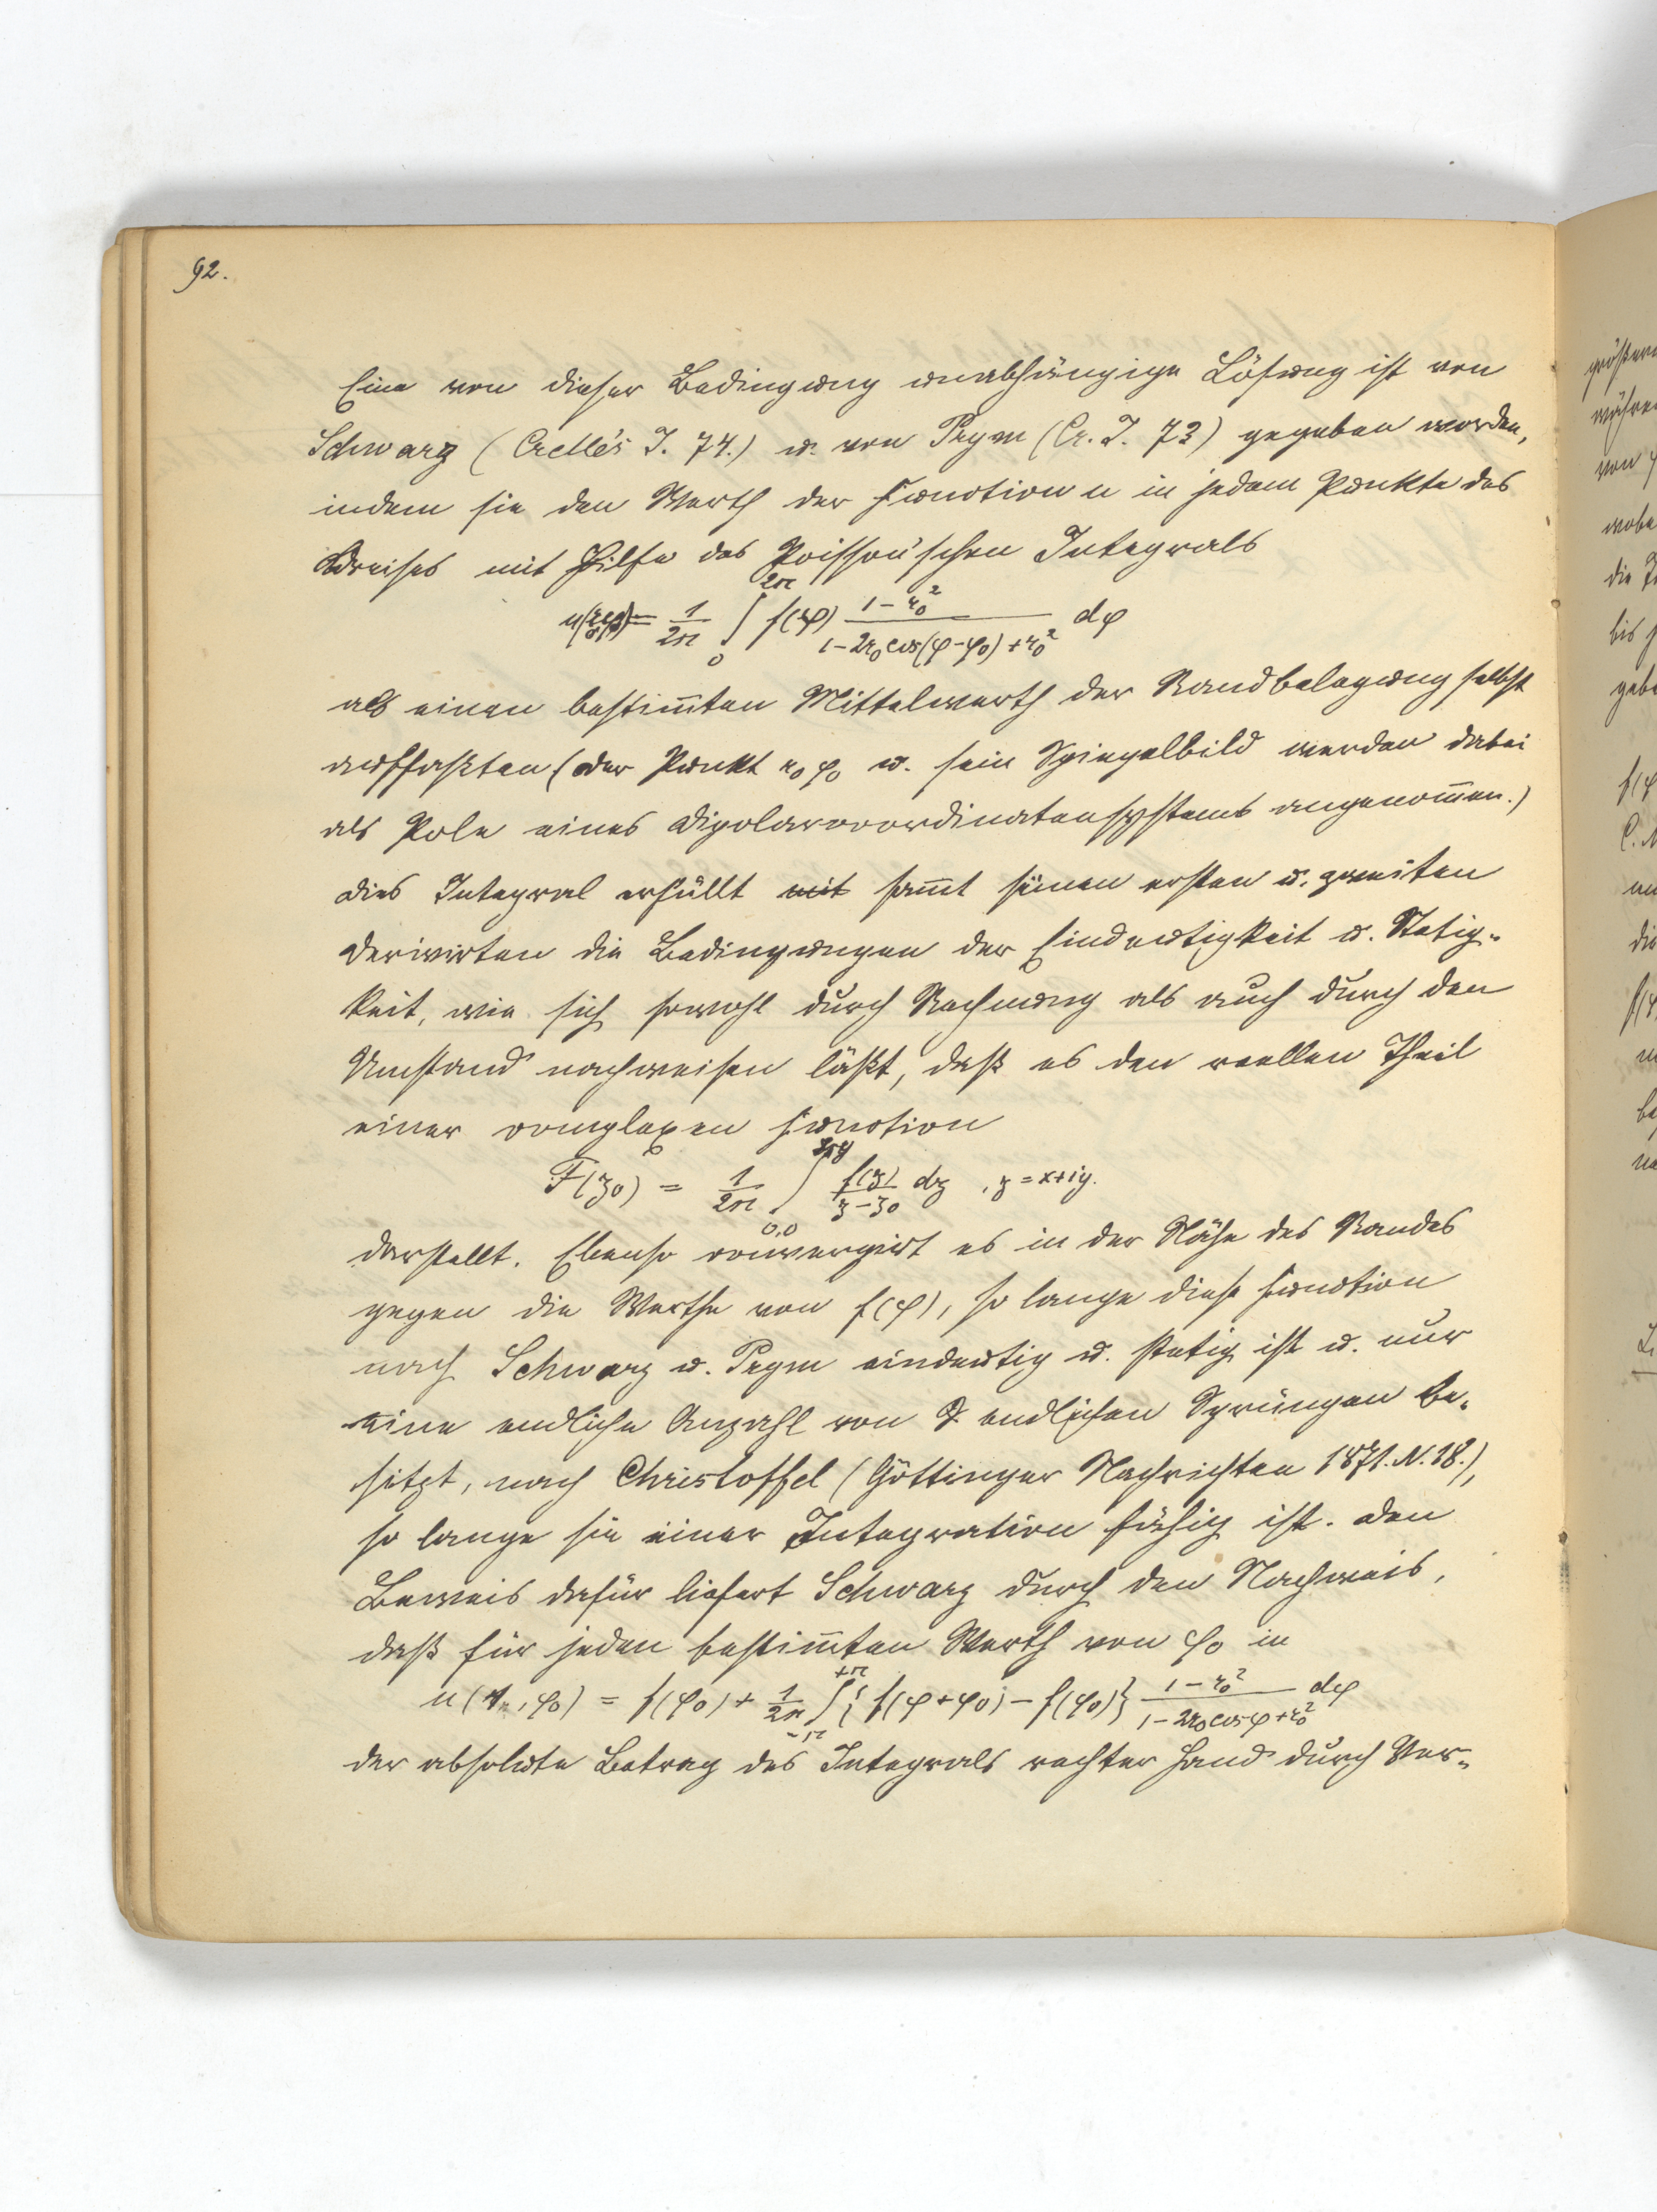 92.
Eine von dieser Bedingung unabhängige Lösung ist von
Schwarz (Crelle's J. 74.) u. von Prym (Cr. J. 73) gegeben worden,
indem sie den Werth der Function u in jedem Punkte des
Kreises mit Hilfe des Poisson'schen Integrals
u(r₀φ₀) = 1/2π ∫₀^2π f(φ) (1 − r₀²)/(1 − 2r₀ cos(φ − φ₀) + r₀²) dφ
als einen bestim̅ten Mittelwerth der Randbelegung selbst
auffaßten (der Punkt r₀ φ₀ u. sein Spiegelbild werden dabei
als Pole eines Dipolarcoordinatensystems angenom̅en.)
Dies Integral erfüllt mit sam̅t seinen ersten u. zweiten
Derivirten die Bedingungen der Eindeutigkeit u. Stetig-
keit, wie sich sowohl durch Rechnung als auch durch den
Umstand nachweisen läßt, daß es den reellen Theil
einer complexen Function
F(z₀) = 1/2π ∫ f(z)/(z − z₀) dz , z = x+iy.
0,0
darstellt. Ebenso convergirt es in der Nähe des Randes
gegen die Werthe von f(φ), so lange diese Function
nach Schwarz u. Prym eindeutig u. stetig ist u. nur
eine endliche Anzahl von endlichen Sprüngen be-
sitzt, nach Christoffel (Göttinger Nachrichten 1871. N. 18.),
so lange sie einer Integration fähig ist. Den
Beweis dafür liefert Schwarz durch den Nachweis,
daß für jeden bestim̅ten Werth von φ₀ in
u(r₀, φ₀) = f(φ₀) + 1/2π ∫₋π^+π {f(φ+φ₀) − f(φ₀)} (1 − r₀²)/(1 − 2r₀ cos φ + r₀²) dφ
der absolute Betrag des Integrals rechter Hand durch Ver-